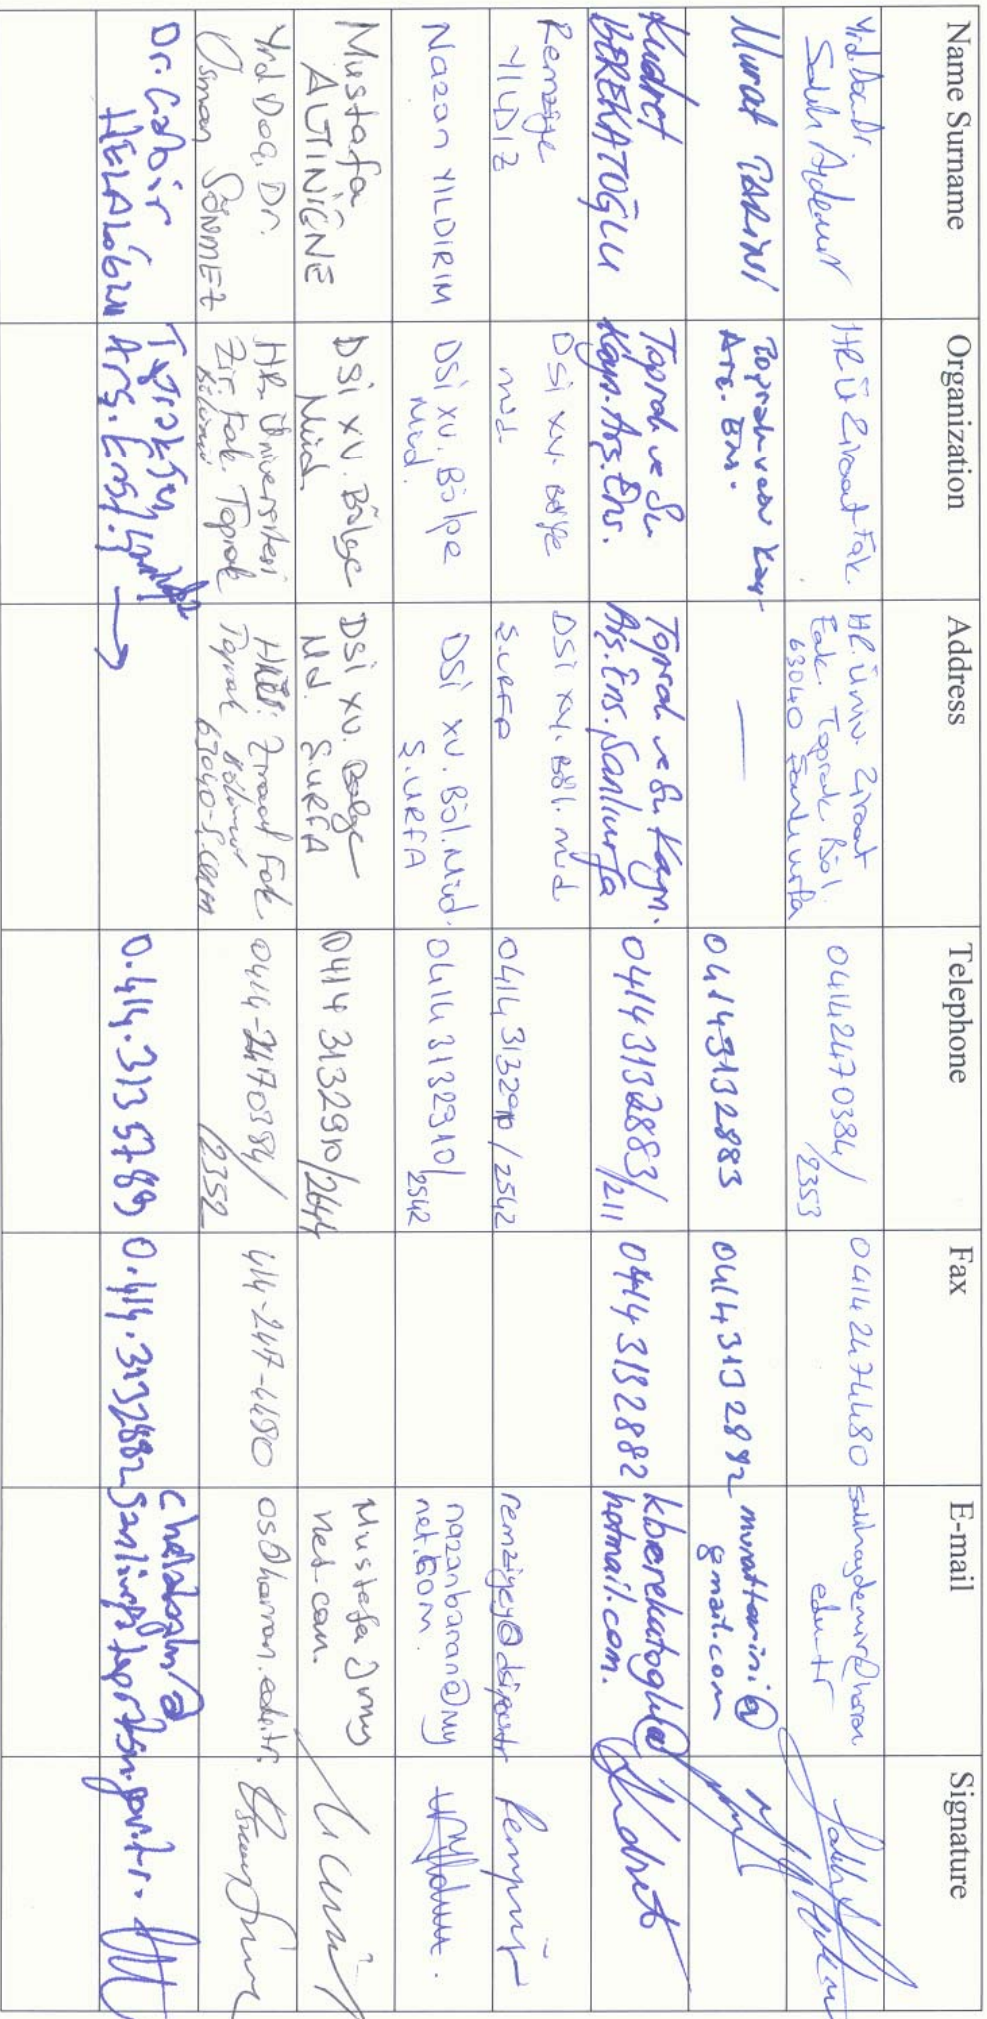 Name Surname Organization Address Telephone Fax E-mail Signature
Yrd. Doç. Dr.
Salih Aydemir
HR Ü Ziraat Fak.
HR. Üniv. Ziraat
Fak. Toprak Böl.
63040 Şanlıurfa
04142470384/
2353
04142474480
salihaydemir@harran
edu.tr
Murat TARINI
Toprak ve su Kay.
Arş. Ens.
—
04143132883
0414 313 2882
murattarini@
gmail.com
Kudret
BEREKATOĞLU
Toprak ve Su
Kayn. Arş. Ens.
Toprak ve Su Kayn.
Arş. Ens. Şanlıurfa
0414 3132883/211
0414 3132882
kberekatoglu@
hotmail.com.
Kudret
Remziye
YILDIZ
DSİ XV. Bölge
müd.
DSİ XV. Böl. müd
Ş.URFA
0414 3132910/2542
Nazan YILDIRIM
DSİ XV. Bölge
Müd.
DSİ XV. Böl. Müd.
Ş.URFA
0414 3132910/
2542
nazanbaran@my
net.com.
Mustafa
ALTINİĞNE
DSİ XV. Bölge
Müd.
DSİ XV. Bölge
Md. Ş.URFA
0414 3132910/2644
net.com.
Yrd Doç. Dr.
Osman SÖNMEZ
HR. Üniversitesi
Zir. Fak. Toprak
Bölümü
Ziraat Fak
Toprak Bölümü
63040-Ş.URFA
0414-2470384/
2352
414-247-4480
os@harran.edu.tr.
Dr. Cabir
HELALOĞLU
Arş. Enst. →
0.414.313 5789
0.414.3132882